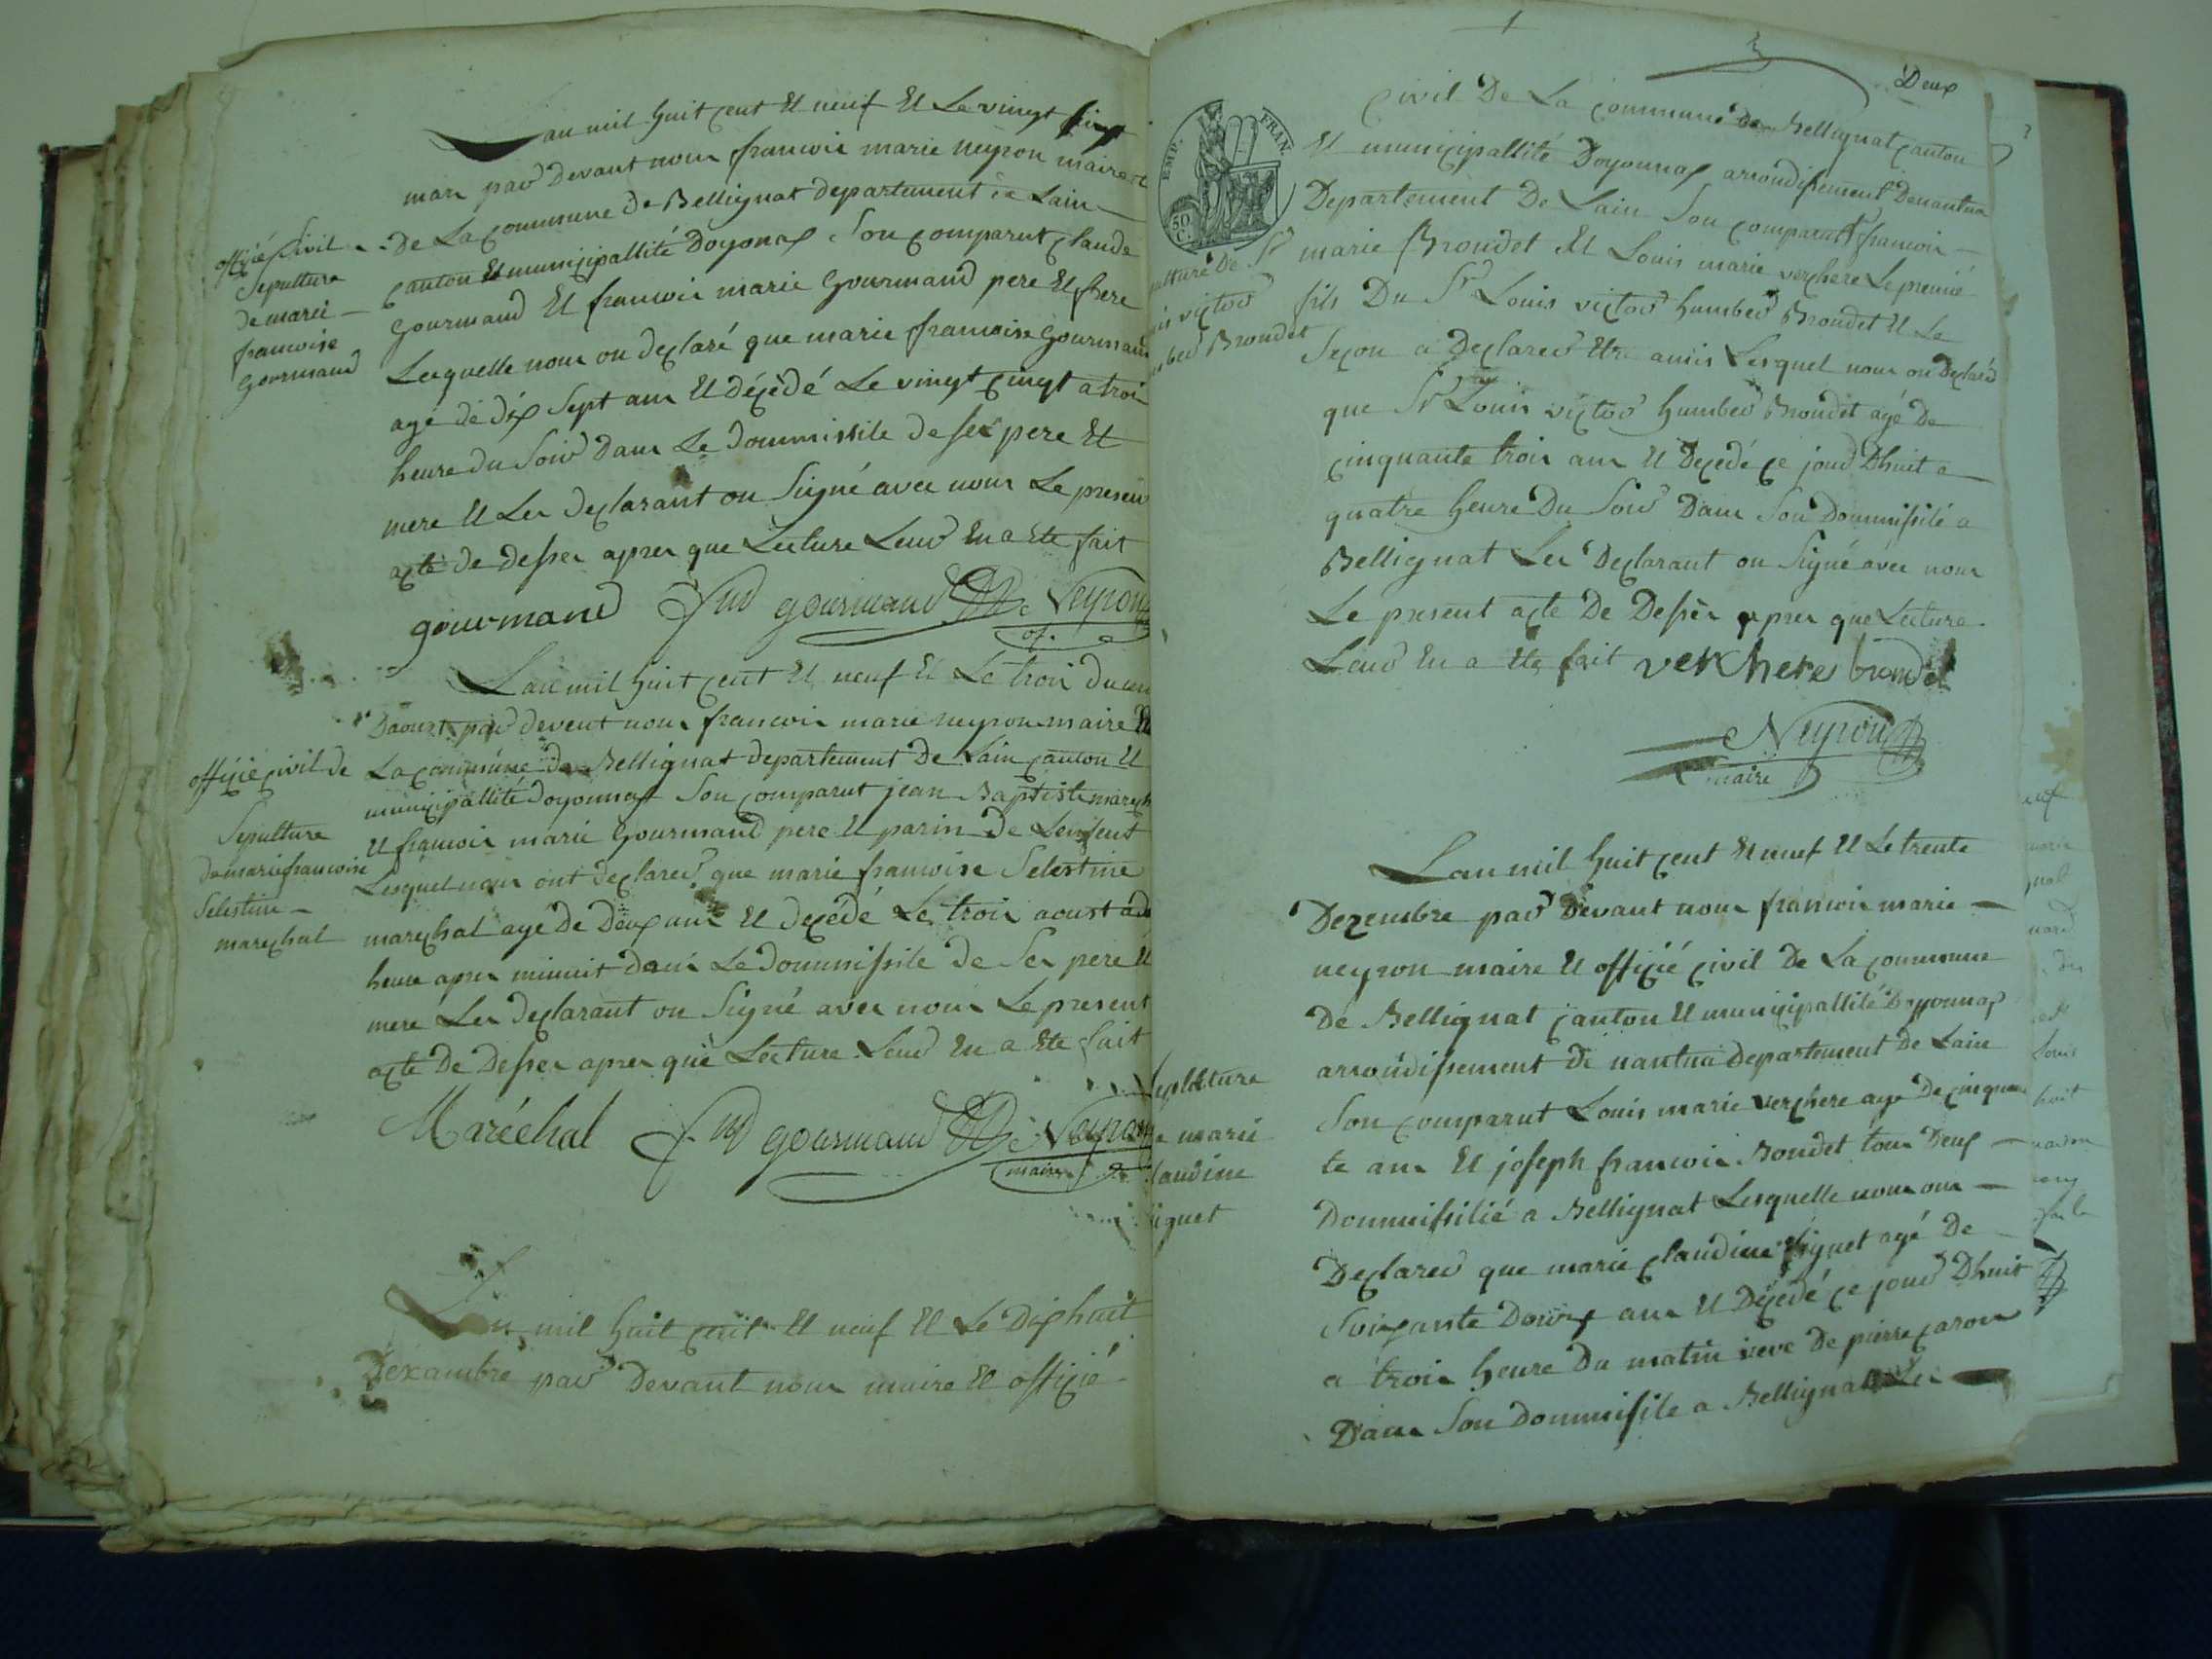 Lan mil huit cent Et neuf Et Le vingt
mars par Devant nous francois marie neyron maire et
officié Civil De La commune De Bellignat departement de Lain
Sepulture
de marie
francoise
gourmand
canton Et municipallité Doyonax Son comparut claude
Gourmand Et francois marie Gourmand pere Et frere
Lesquelle nous on declaré que marie francoise Gourmand
agé de dix Sept ans Et décédé Le vingt cinqt a troi
heure du Soir Dans Le Dommissile de Ses pere Et
mere Et Les declarant on Signé avec nous Le present
acte de desser apres que Lecture Leur En a Ete fait
gourmand gourmand Neyron
Lan mil huit cent Et neuf Et Le troi du
Daoust par devent nous francois marie neyron maire Et
officié civil de La commune De Bellignat departement De Lain canton Et
Sepulture
de marie francoise
Selestine
marechal
municipallité doyonnax Son comparut jean Baptiste marech
Et francois marie Gourmand pere Et parin De Lenfent
Lesquel nous ont declarer que marie francoise Selestine
marechal agé De Deux ans Et decédé Le trois aoust a
heure apres minuit dans Le Dommissile De Ses pere Et
mere Les declarant on Signé avec nous Le present
acte De Desser apres que Lecture Leur En a Ete fait
Maréchal gourmand Neyron
maire
Lan mil huit cent Et neuf Et Le Dixhuit
Dexambre par Devant nous maire Et officié
Deux
EMP. FRAN.
50 C.
civil De La commune De Bellignat canton
Et municipallité Doyonnax arrondissement Denantua
Departement De Lain Son comparut francois
marie Brondet Et Louis marie verchere Le premié
fils Du Sr Louis victor humber Brondet Et Le
Secon a Declarer Etre amis Lesquel nous on Declaré
que Sr Louis victor humber Brondet agé De
cinquante trois ans Et Decedé ce jour Dhuit a
quatre heure Du Soir Dans Son Dommissile a
Bellignat Les Declarant on Signé avec nous
Le present acte De Desser apres que Lecture
Leur En a Ete fait verchere brondet
Neyron
maire
Lan mil huit cent Et neuf Et Le trente
Dezembre par Devant nous francois marie
neyron maire Et officié civil De La commune
De Bellignat canton Et municipallité Doyonnax
arrondissement De nantua Departement De Lain
Son comparut Louis marie verchere agé De cinquan
te ans Et joseph francois Bondet tous Deux
Dommissilié a Bellignat Lesquelle nous ons
Declarer que marie claudine agé De
Soixante Douze ans Et Décédé ce jour Dhuit
a trois heure Du matin veve De pierre caron
Dans Son Dommissile a Bellignat Les